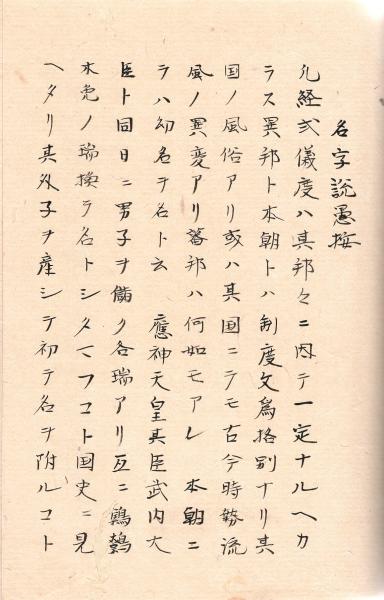 名字説愚按
凡経式儀度ハ其邦々ニ因テ一定ナルヘカ
ラス異邦ト本朝トハ制度文為格別ナリ其
国ノ風俗アリ或ハ其国ニテモ古今時勢流
風ノ異変アリ蕃邦ハ何如モアレ　本朝ニ
テハ幼名ヲ名ト云　應神天皇其臣武内大
臣ト同日ニ男子ヲ儲ク各瑞アリ互ニ鷦鷯
木兎ノ瑞換テ名トシタマフコト国史ニ見
ヘタリ其外子ヲ産シテ初テ名ヲ附ルコト